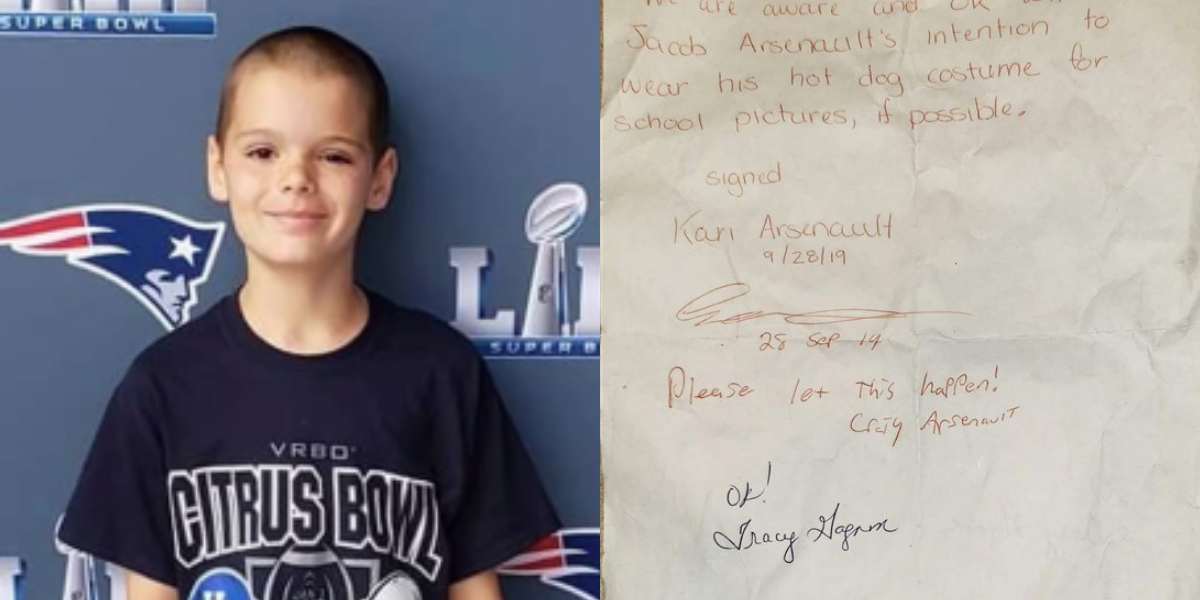 SUPER BOWL
SUPER B
VRBO
CITRUS BOWL
We are aware and OK
Jacob Arsenault's intention to
wear his hot dog costume for
school pictures, if possible.
signed
Kari Arsenault
9/28/19
28 Sep 19
Please let this happen!
Craig Arsenault
OK!
Tracy